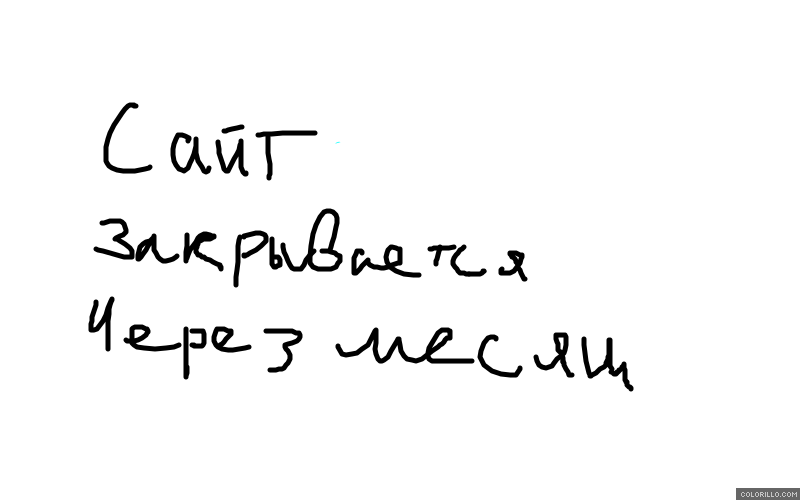 Сайт
закрывается
через месяц
COLORILLO.COM